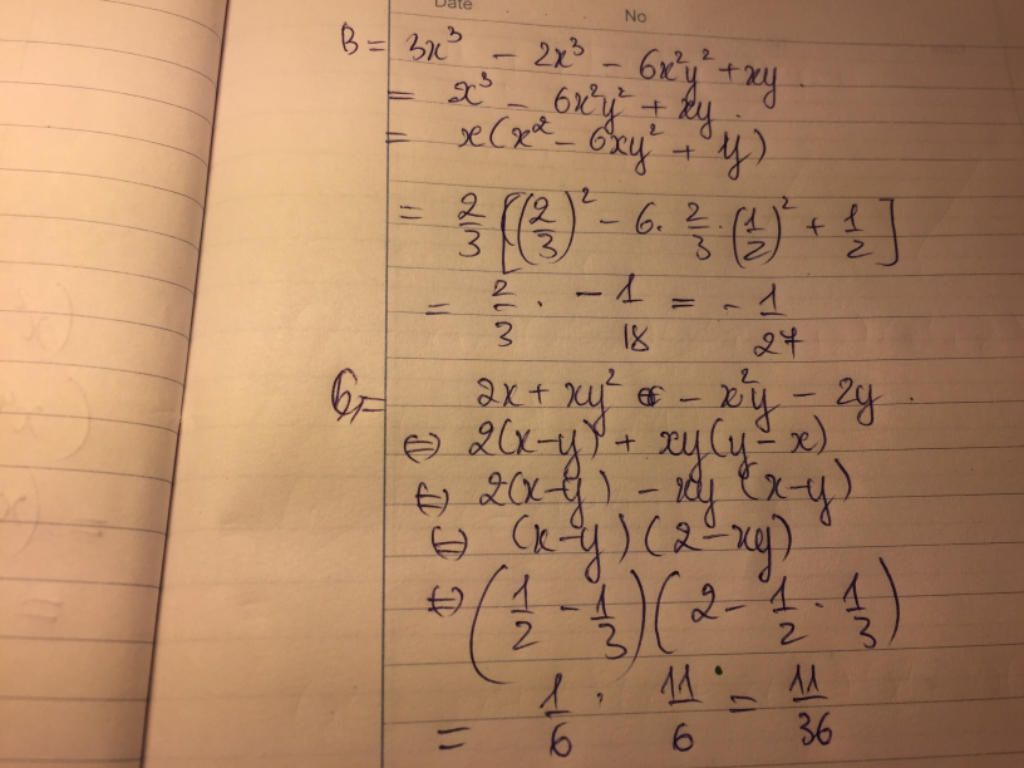 Date
No
B = 3x³ - 2x³ - 6x²y² + xy.
= x³ - 6x²y² + xy.
= x(x² - 6xy² + y)
= 2/3 [(2/3)² - 6. 2/3 . (1/2)² + 1/2]
= 2/3 . -1/18 = -1/27
= 2x + xy² - x²y - 2y.
⇔ 2(x-y) + xy(y-x)
⇔ 2(x-y) - xy (x-y)
⇔ (x-y)(2-xy)
⇔ (1/2 - 1/3)(2 - 1/2 . 1/3)
= 1/6 . 11/6 = 11/36